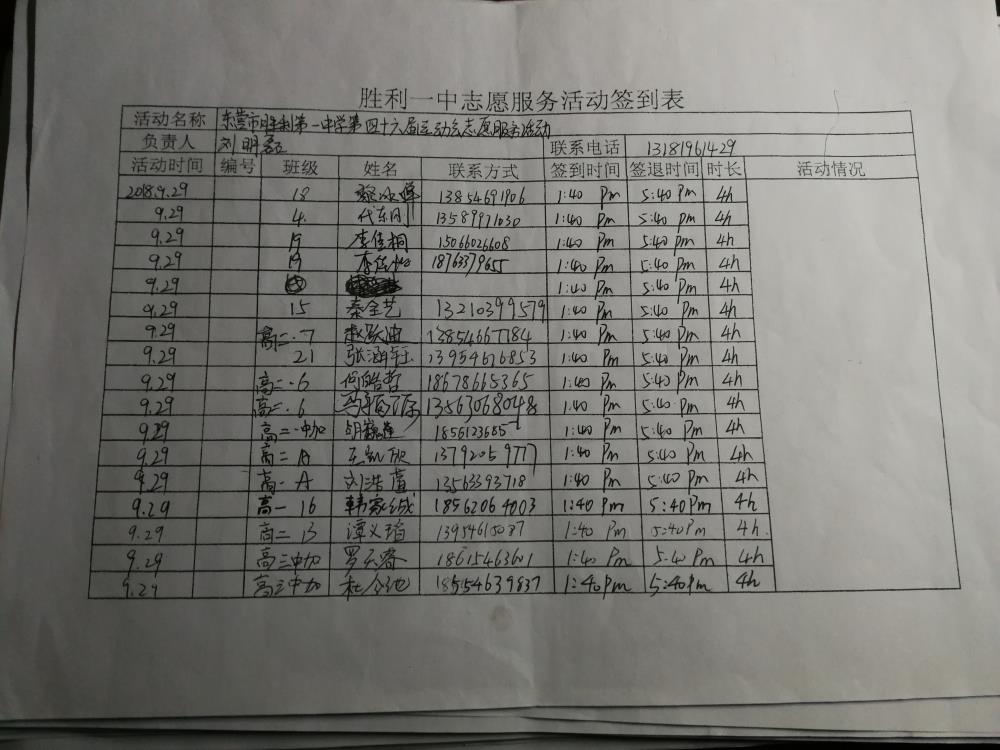 胜利一中志愿服务活动签到表
活动名称 东营市胜利第一中学第四十六届运动会志愿服务活动
负责人 刘明 联系电话 13181961429
活动时间 编号 班级 姓名 联系方式 签到时间 签退时间 时长 活动情况
2018.9.29 18 13854691906 1:40 Pm 5:40 Pm 4h
9.29 4. 代东 13589971030 1:40 Pm 5:40 Pm 4h
9.29 19 李佳桐 15066026608 1:40 Pm 5:40 Pm 4h
9.29 19 李佳 18763379655 1:40 Pm 5:40 Pm 4h
9.29 1:40 Pm 5:40 Pm 4h
9.29 15 秦全艺 13210399579 1:40 Pm 5:40 Pm 4h
9.29 高二.7 赵跃迪 13854667784 1:40 Pm 5:40 Pm 4h
9.29 21 张涵钰 13954676853 1:40 Pm 5:40 Pm 4h
9.29 高二.6 何皓哲 18678665365 1:40 Pm 5:40 Pm 4h
9.29 高二.6 马 13563068048 1:40 Pm 5:40 Pm 4h
9.29 高二.中加 胡 1:40 Pm 5:40 Pm 4h
9.29 高二A 王凯 13792059777 1:40 Pm 5:40 Pm 4h
9.29 高一A 刘浩 13563393718 1:40 Pm 5:40 Pm 4h
9.29 高一16 韩家诚 18562064003 1:40 Pm 5:40 Pm 4h
9.29 高二13 谭义 13954615087 1:40 Pm 5:40 Pm 4h.
9.29 高三中加 罗云睿 18615463601 1:40 Pm 5:40 Pm 4h
9.29 高三中加 杜 18554639837 1:40 Pm 5:40 Pm 4h